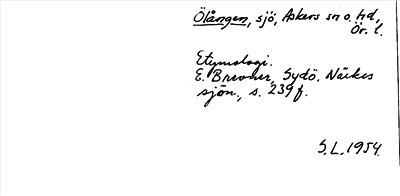 Ölången, sjö, Askers sn o. hd,
Ör. l.
Etymologi.
E. Brevner, Sydö. Närkes
sjön., s. 239 f.
S.L. 1954.